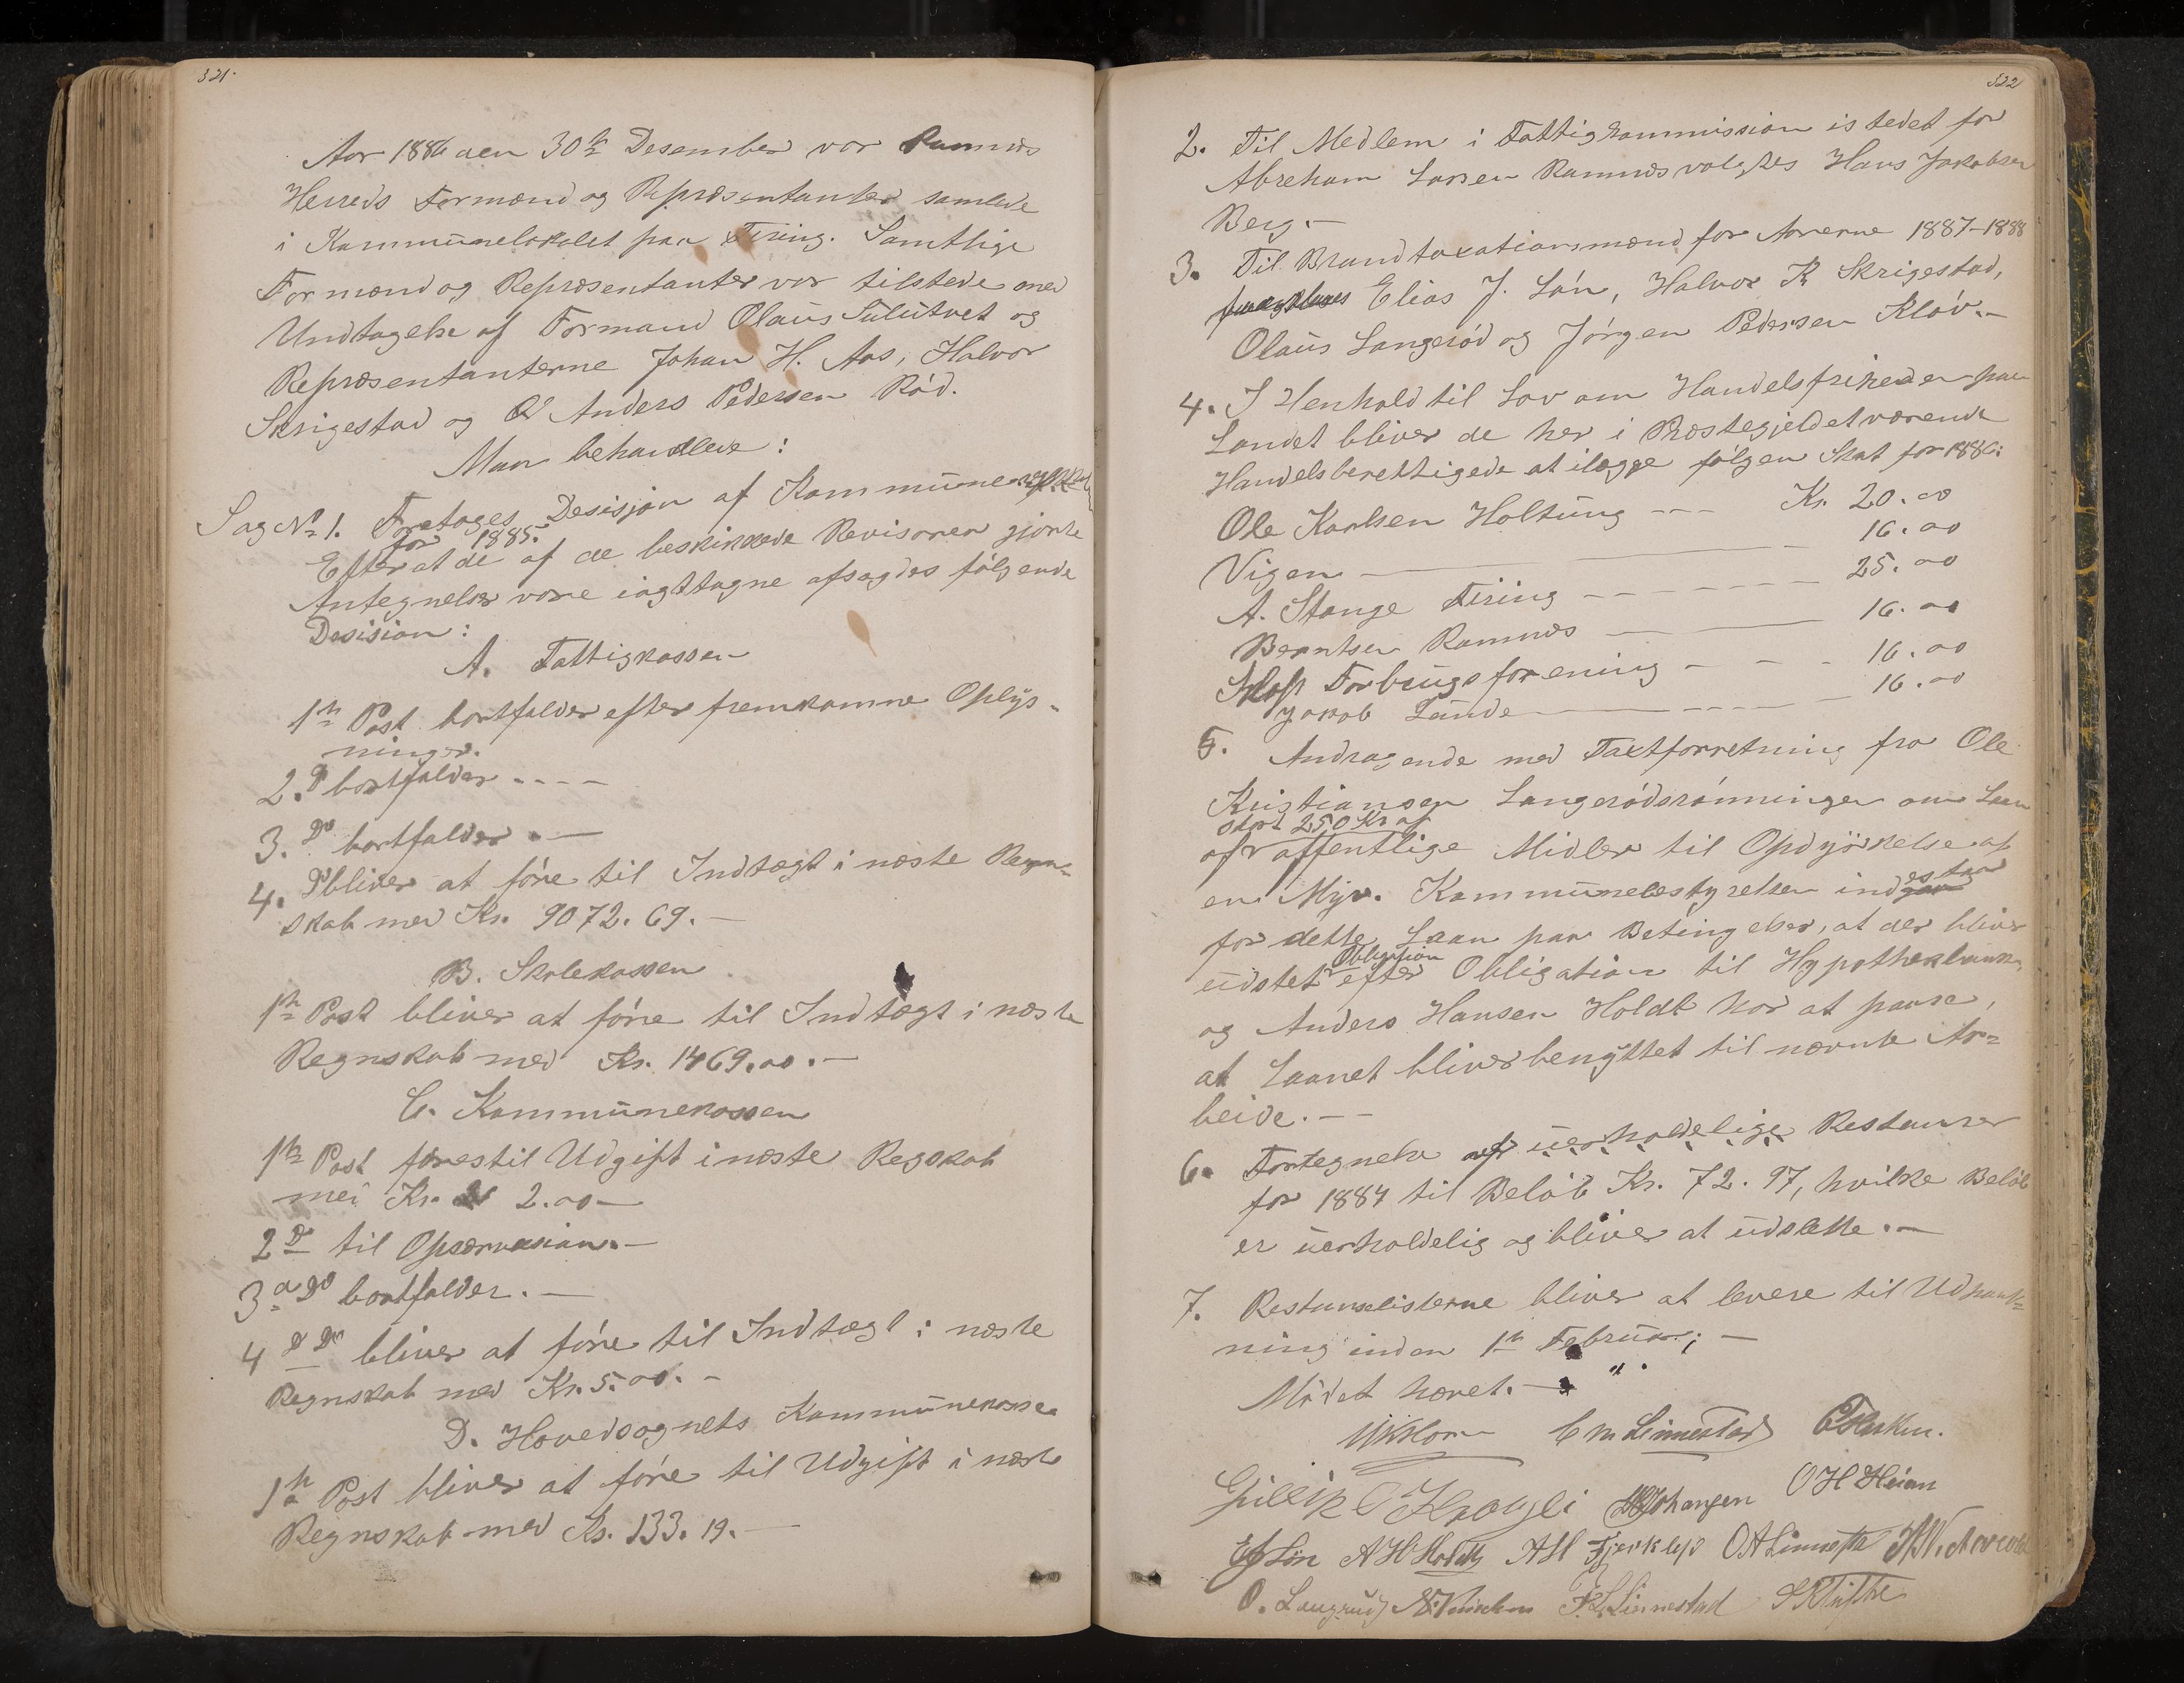 321.
Aar 1886 den 30te Desember var Ramnæs
Herreds Formænd og Repræsentanter samlede
i Kommunelokalet paa Firing. Samtlige
Formænd og Repræsentanter var tilstede med
Undtagelse af Formand Olaus Sulutvet og
Repræsentanterne Johan H. Aas, Halvor
Skrigestad og Anders Pedersen Rød.
Man behandlede:
Sag No 1. Foretoges Desisjon af Kommune
for 1885.
Efter at de af de beskikkede Revisorer gjorte
Antegnelser vare iagttagne afsagdes følgende
Desision:
A. Fattigkassen
1ste Post bortfalder efter fremkomne Oplys-
ninger.
2. Do bortfalder ----
3. Do bortfalder. —
4. Do bliver at føre til Indtægt i næste Regn-
skab med Kr. 9072.69. —
B. Skolekassen
1ste Post bliver at føre til Indtægt i næste
Regnskab med Kr. 1469.00. —
C. Kommunekassen
1ste Post føres til Udgift i næste Regskab
med Kr. 2.00 —
2 Do til Opservasian. —
3 Do bortfalder. —
4 Do bliver at føre til Indtægt i næste
Regnskab med Kr. 5.00. -
D. Hovedsognets Kommunekasse
1ste Post bliver at føre til Udgift i næste
Regnskab med Kr. 133.19. —
322
2. Til Medlem i Fattigkommission istedet for
Abreham Larsen Ramnæs valgtes Hans Jakobsen
Berg. —
3. Til Brandtaxationsmænd for Aarerne 1887-1888
Elias J. Løn, Halvor K Skrigestad,
Olaus Langerød og Jørgen Pedersen Kløv. —
4. I Henhold til Lov om Handelsfriheden paa
Landet bliver de her i Præstegjeldet værende
Handelsberettigede at ilægge følgen Skat for 1886:
Ole Karlsen Holtung --- Kr. 20.00
Vigen — 16.00
A. Stange Firing ------ 25.00
Berntsen Ramnæs — 16.00
Klopp Forbrugsforening - - - 16.00
Jakob Lunde — ---- 16.00
5. Andragende med Taxtforretning fra Ole
Kristiansen Langerødsrønningen om Laan
stort 250 Kr af
af offentlige Midler til Opdyrkelse af
en Myr. Kommunebestyrelsen indestaar
for dette Laan paa Betingelser, at der bliver
Obligation
udstet efter Obligation til Hypothekbank
og Anders Hansen Holdt har at paase,
at Laanet bliver benyttet til nævnte Ar-
beide. — —
6. Fortegnelse af uerholdelige Restanser
for 1884 til Beløb Kr. 72.97, hvilke Beløb
er uerholdelig og bliver at udslette. —
7. Restanselisterne bliver at levere til Udpant-
ning inden 1ste Februar; —
Mødet hævet. —
C M Linnestad
Gullik O Kraugli Johansen O H Heian
E J Løn A H Holdt A H Fjerklep O A Linnestad
O. Langerud F. L. Linnestad